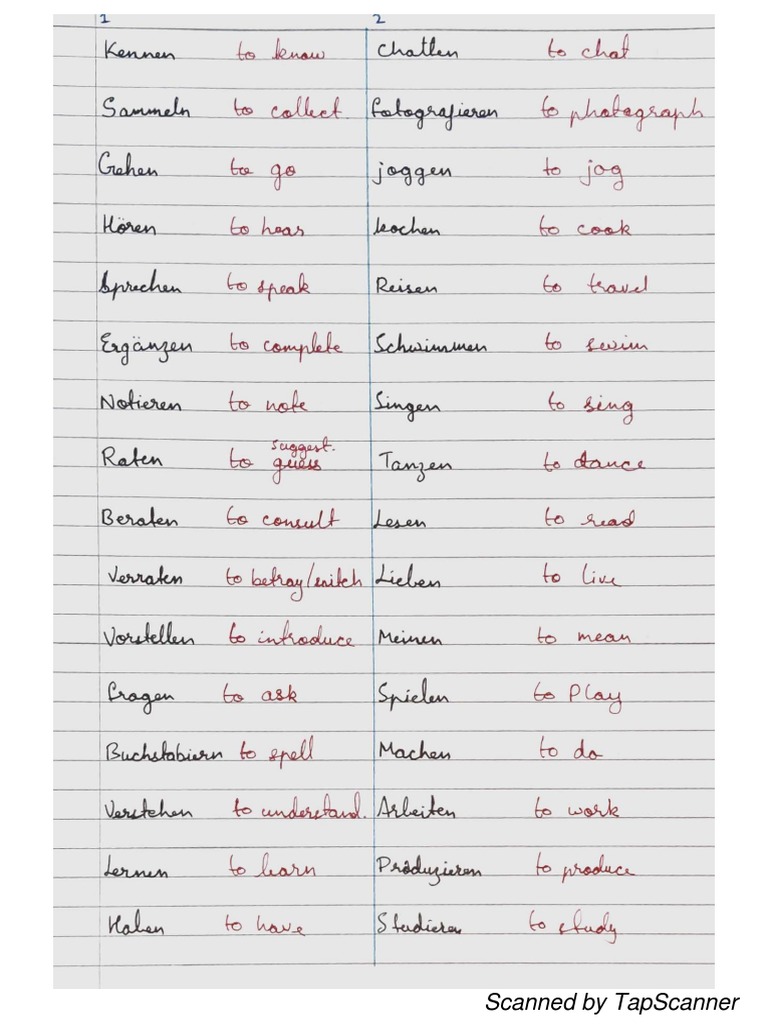 1 2
Kennen to know Chatten to chat
Sammeln to collect fotografieren to photograph
Gehen to go joggen to jog
Hören to hear kochen to cook
Sprechen to speak Reisen to travel
Ergänzen to complete Schwimmen to swim
Notieren to note Singen to sing
suggest.
Raten to guess Tanzen to dance
Beraten to consult Lesen to read
Verraten to betray/snitch Lieben to live
Vorstellen to introduce Meinen to mean
fragen to ask Spielen to Play
Buchstabiern to spell Machen to do
Verstehen to understand. Arbeiten to work
Lernen to learn Produzieren to produce
Haben to have Studieren to study
Scanned by TapScanner